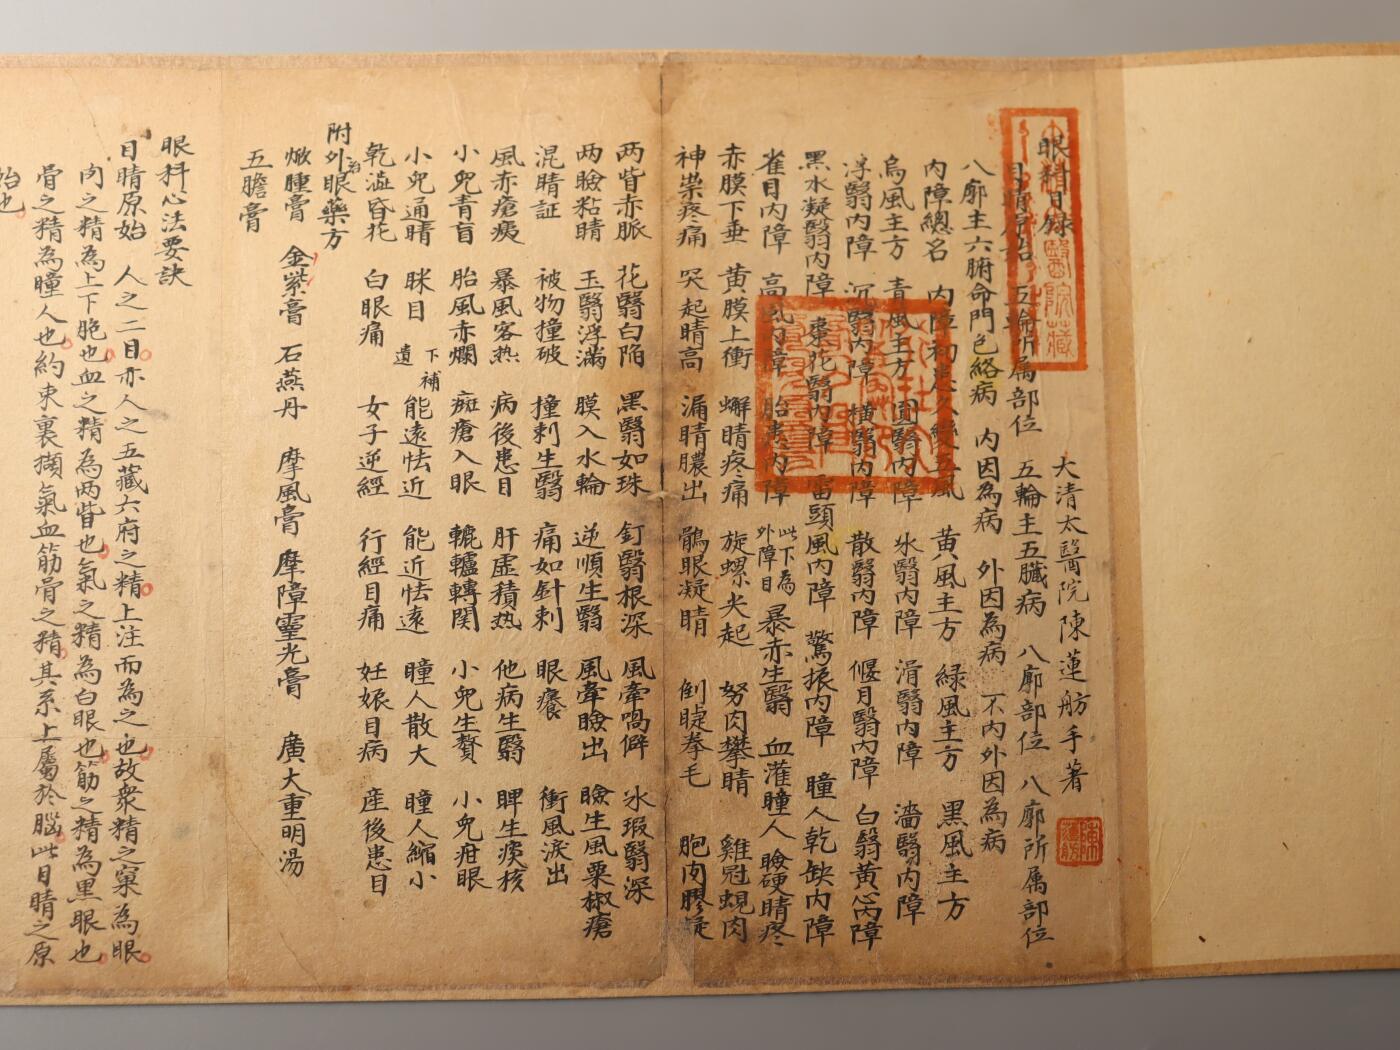 眼科目録
大清太醫院陳蓮舫手著
目睛原始 五輪所属部位 五輪主五臟病 八廓部位 八廓所属部位
八廓主六腑命門色絡病 内因為病 外因為病 不内外因為病
内障總名 内障初患久變五風 黄風主方 緑風主方 黒風主方
烏風主方 青風主方 圓翳内障 氷翳内障 滑翳内障 濇翳内障
浮翳内障 沉翳内障 横翳内障 散翳内障 偃月翳内障 白翳黄心内障
黑水凝翳内障 棗花翳内障 雷頭風内障 驚振内障 瞳人乾缺内障
雀目内障 高風内障 胎患内障 此下為外障目 暴赤生翳 血灌瞳人 瞼硬睛疼
赤膜下垂 黄膜上衝 蠏睛疼痛 旋螺尖起 努肉攀睛 雞冠蜆肉
神祟疼痛 突起睛高 漏睛膿出 鶻眼凝睛 倒睫拳毛 胞肉膠凝
两眥赤脈 花翳白陷 黑翳如珠 釘翳根深 風牽喎僻 氷瑕翳深
两瞼粘睛 玉翳浮滿 膜入水輪 逆順生翳 風牽瞼出 瞼生風粟椒瘡
混睛証 被物撞破 撞刺生翳 痛如針刺 眼癢 衝風淚出
風赤瘡痍 暴風客热 病後患目 肝虚積热 他病生翳 睥生痰核
小兒青盲 胎風赤爛 癍瘡入眼 轆轤轉関 小兒生贅 小兒疳眼
小兒通睛 眯目 下補遺 能遠怯近 能近怯遠 瞳人散大 瞳人縮小
乾澁昏花 白眼痛 女子逆經 行經目痛 妊娠目病 産後患目
附外治眼藥方
燉腫膏 金紫膏 石燕丹 摩風膏 摩障靈光膏 廣大重明湯
五膽膏
眼科心法要訣
目睛原始 人之二目亦人之五藏六府之精上注而為之也故衆精之窠為眼
肉之精為上下胞也血之精為两眥也氣之精為白眼也筋之精為黑眼也
骨之精為瞳人也約束裏擷氣血筋骨之精其系上屬於腦此目睛之原
始也